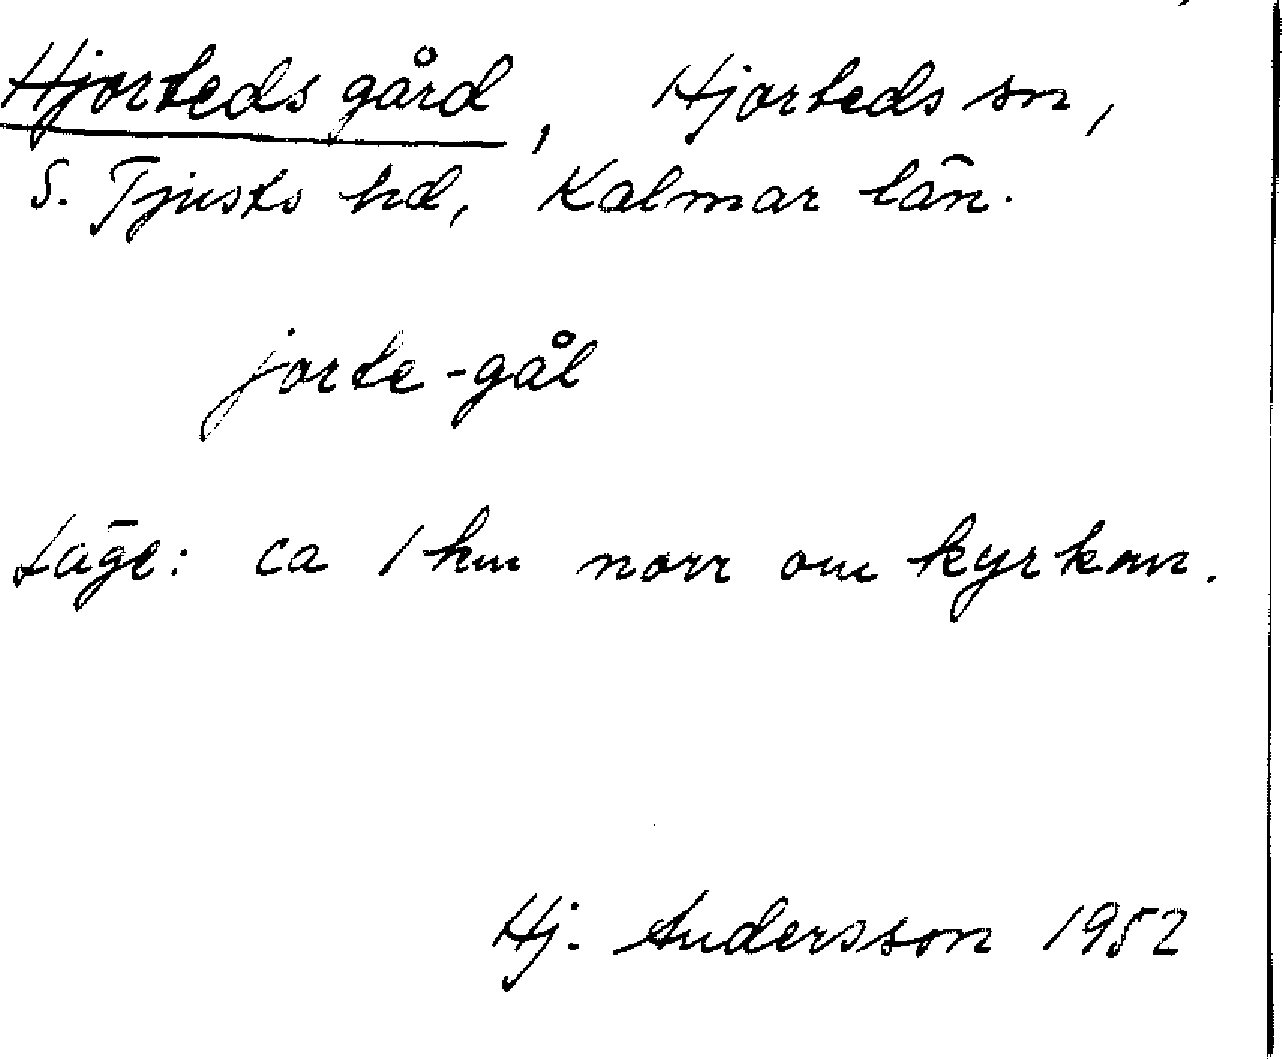 Hjorteds gård, Hjorteds sn,
S. Tjusts hd, Kalmar län.
jorte-gål
Läge: ca 1 km norr om kyrkan.
Hj. Andersson 1952